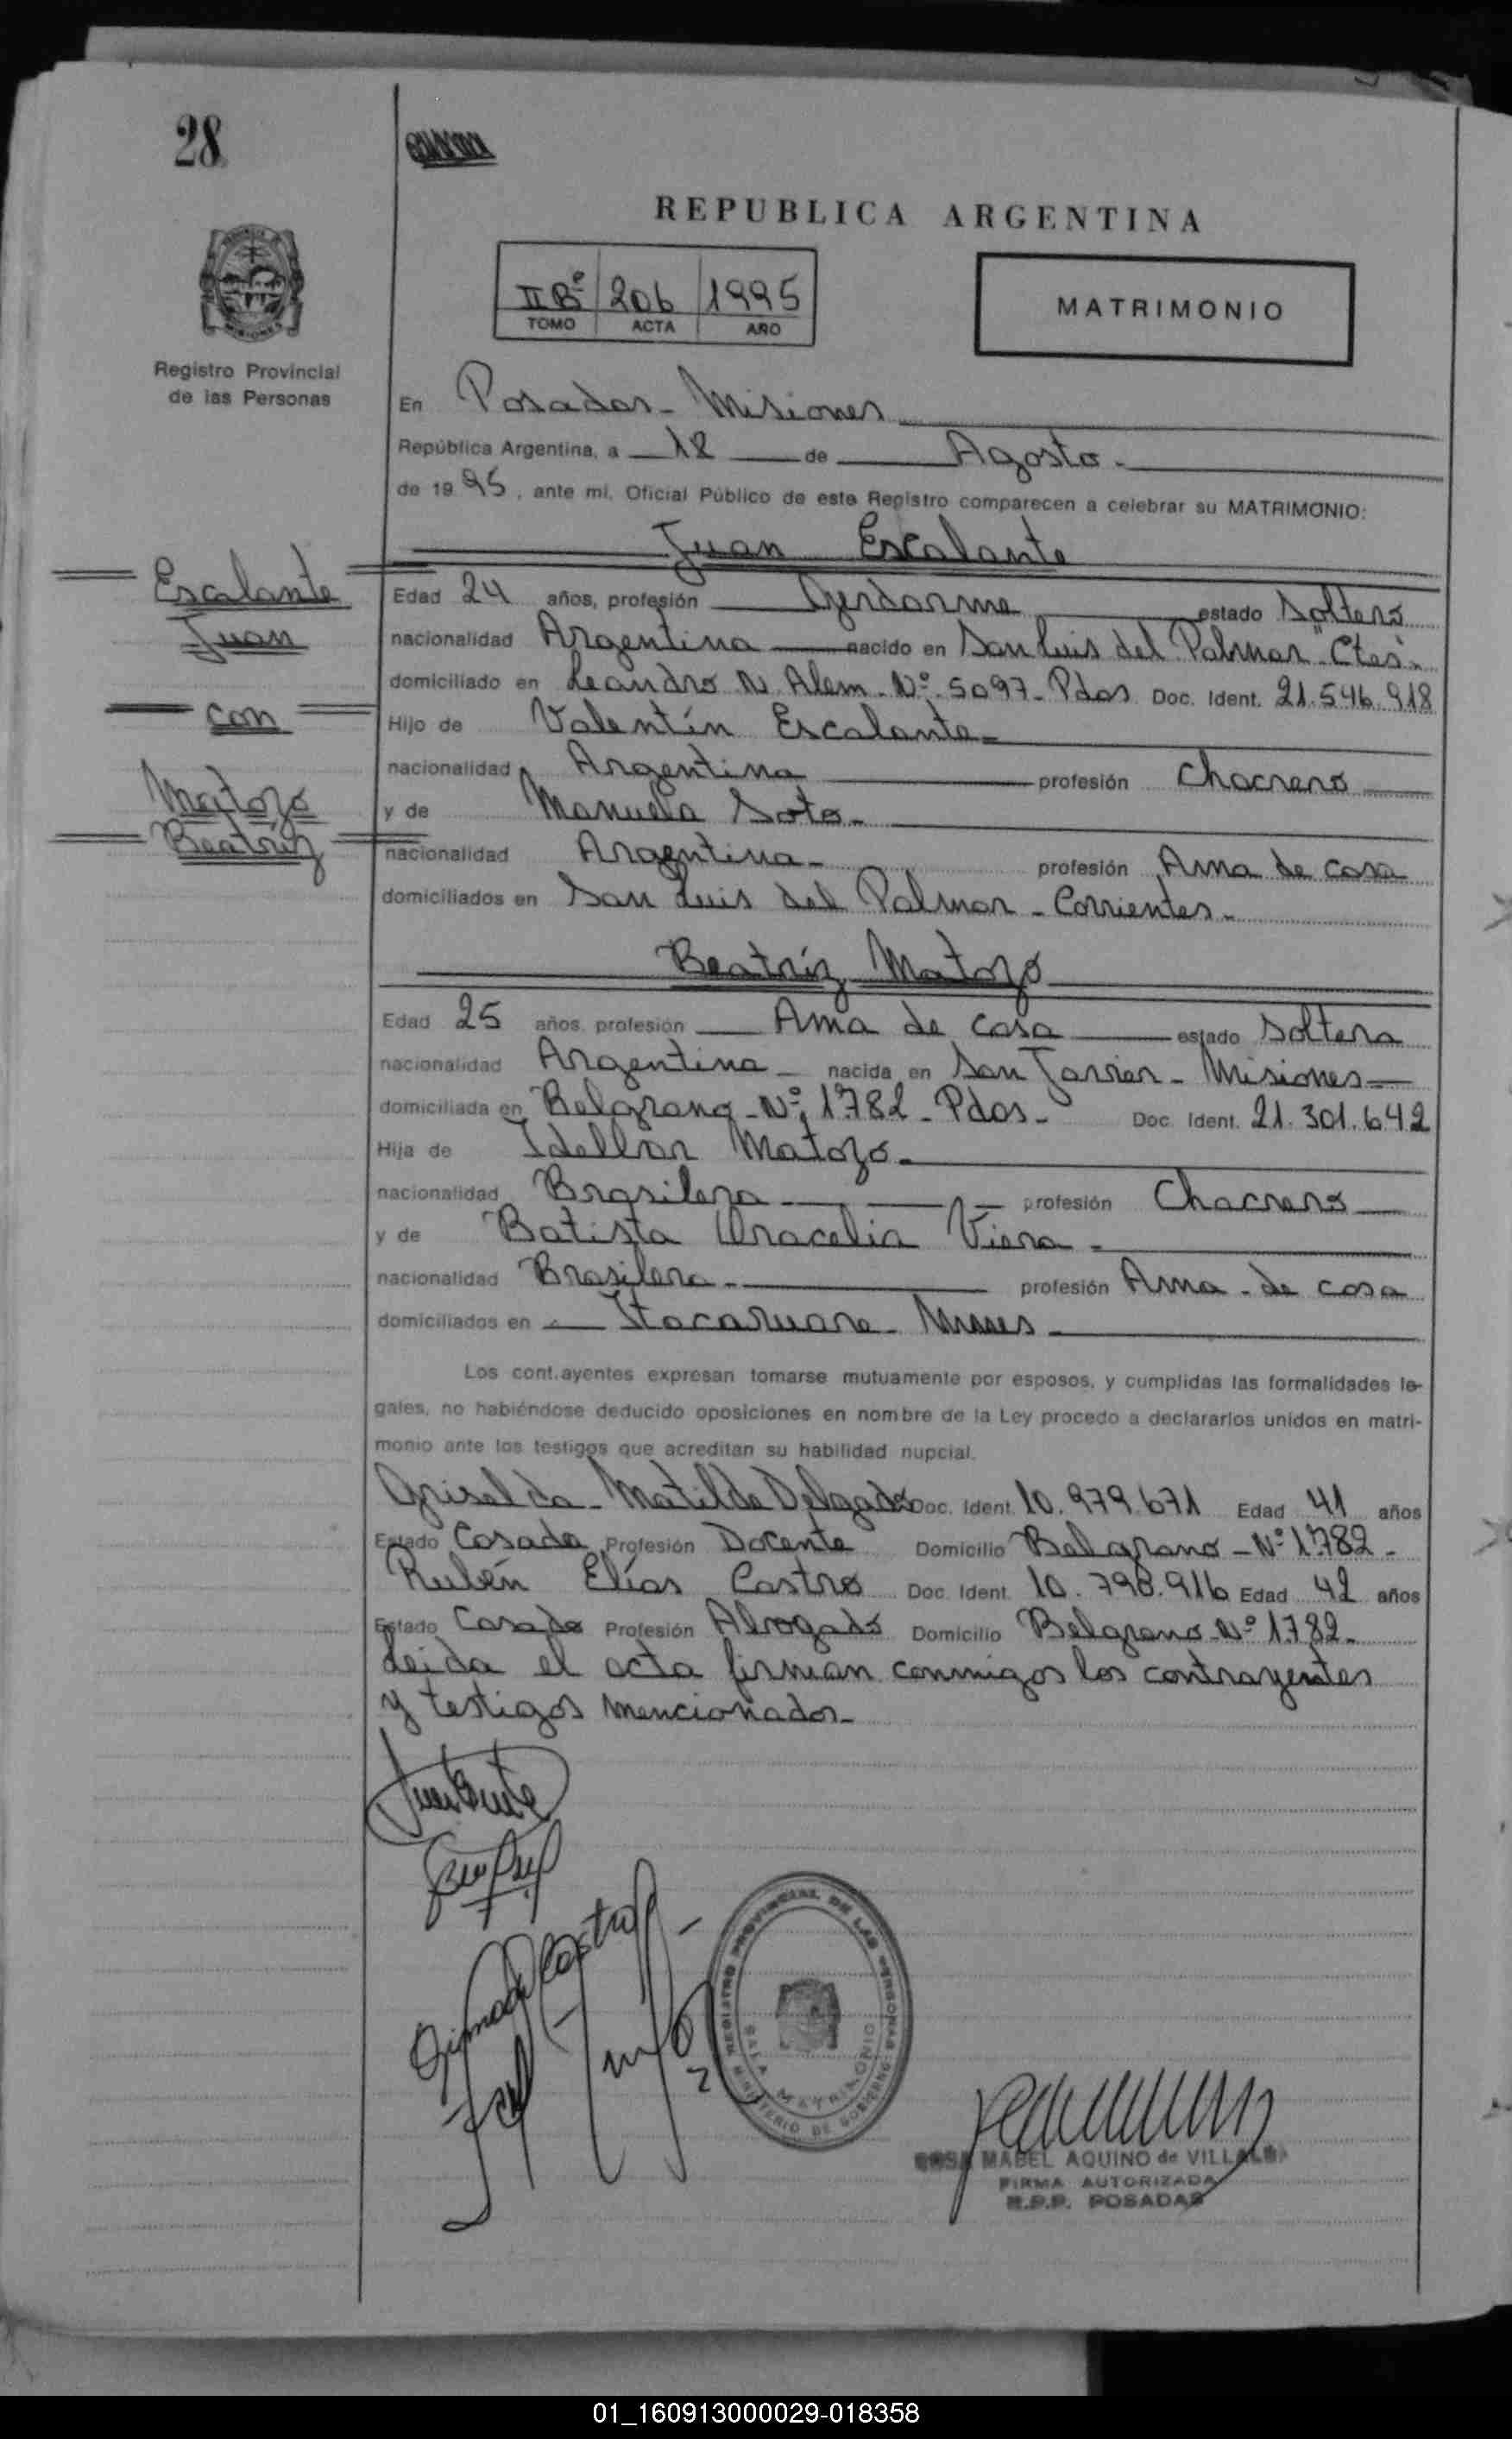 28
REPUBLICA ARGENTINA
II Bº 206 1995
TOMO ACTA AÑO
MATRIMONIO
Registro Provincial
de las Personas
En Posadas - Misiones
República Argentina, a 18 de Agosto -
de 1995, ante mí, Oficial Público de este Registro comparecen a celebrar su MATRIMONIO:
Juan Escalante
Escalante
Juan
con
Matozo
Beatríz
Edad 24 años, profesión Gendarme estado Soltero
nacionalidad Argentina nacido en San Luis del Palmar "Ctes"
domiciliado en Leandro N. Alem - Nº 5097 - Pdas Doc. Ident. 21.546.918
Hijo de Valentín Escalante -
nacionalidad Argentina profesión Chacrero
y de Manuela Soto -
nacionalidad Argentina - profesión Ama de casa
domiciliados en San Luis del Palmar - Corrientes -
Beatríz Matozo
Edad 25 años, profesión Ama de casa estado Soltera
nacionalidad Argentina - nacida en San Javier - Misiones
domiciliada en Belgrano - Nº 1782 - Pdas - Doc. Ident. 21.301.642
Hija de Matozo -
nacionalidad Brasilera profesión Chacrero
y de Batista Viera -
nacionalidad Brasilera - profesión Ama - de casa
domiciliados en Itacaruare - Mnes
Los cont.ayentes expresan tomarse mutuamente por esposos, y cumplidas las formalidades le-
gales, no habiéndose deducido oposiciones en nombre de la Ley procedo a declararlos unidos en matri-
monio ante los testigos que acreditan su habilidad nupcial.
Griselda - Matilde Delgado Doc. Ident. 10.979.671 Edad 41 años
Estado Casada Profesión Docente Domicilio Belgrano - Nº 1782 -
Rubén Elías Castro Doc. Ident. 10.798.916 Edad 42 años
Estado Casado Profesión Abogado Domicilio Belgrano - Nº 1782 -
Leída el acta firman conmigos los contrayentes
y testigos mencionados -
REGISTRO PROVINCIAL DE LAS PERSONAS
SALA MATRIMONIO
MINISTERIO DE GOBIERNO
ROSA MABEL AQUINO de VILLALBA
FIRMA AUTORIZADA
R.P.P. POSADAS
01_160913000029-018358